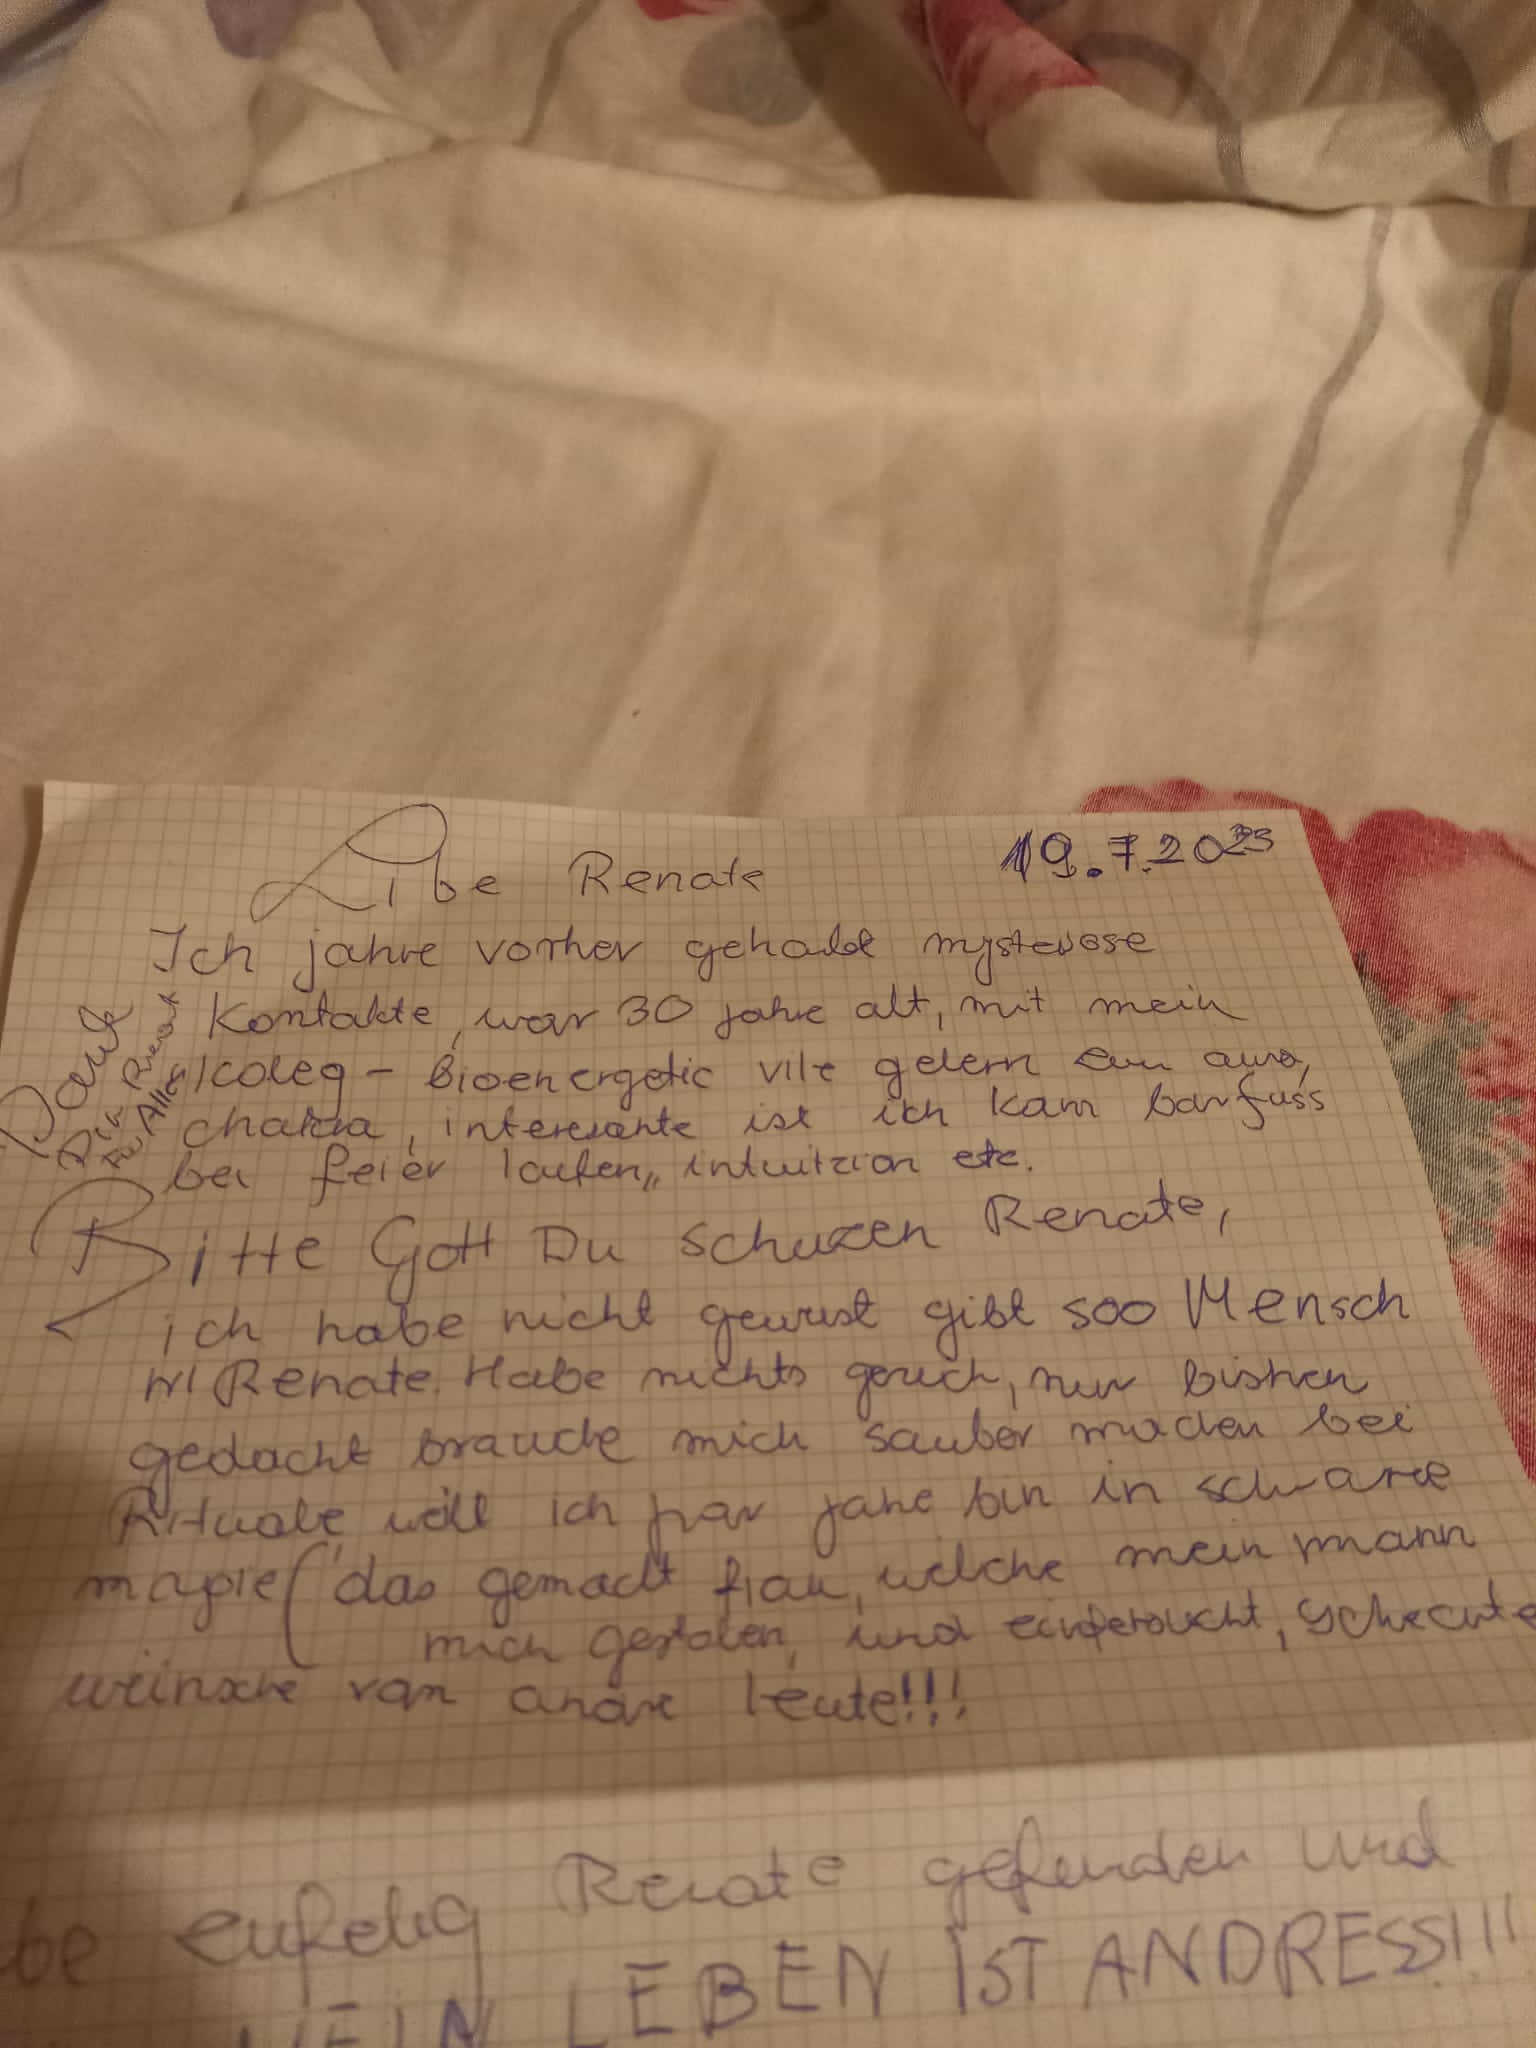 Libe Renate 19.7.2023
Ich jahre vorher gehabt mysteriose
Kontakte, war 30 jahre alt, mit mein
Koleg - Bioenergetic vile gelern aura,
chakra, interesante ist ich kam barfuss
bei feier laufen,, intuitzion etc.
Danke
Din Renate
Für Alles
Bitte Gott Du schuzen Renate,
ich habe nicht gewust gibt soo Mensch
wi Renate. Habe nichts geruch, nur bishen
gedacht brauche mich sauber machen bei
Rituale, weil ich par jahre bin in schwarce
magie (das gemacht frau, welche mein mann
mich gestolen, und eifersucht, schlechte
wünsche von andre leute!!!
be zufelig Renate gefunden und
MEIN LEBEN IST ANDRESS!!!